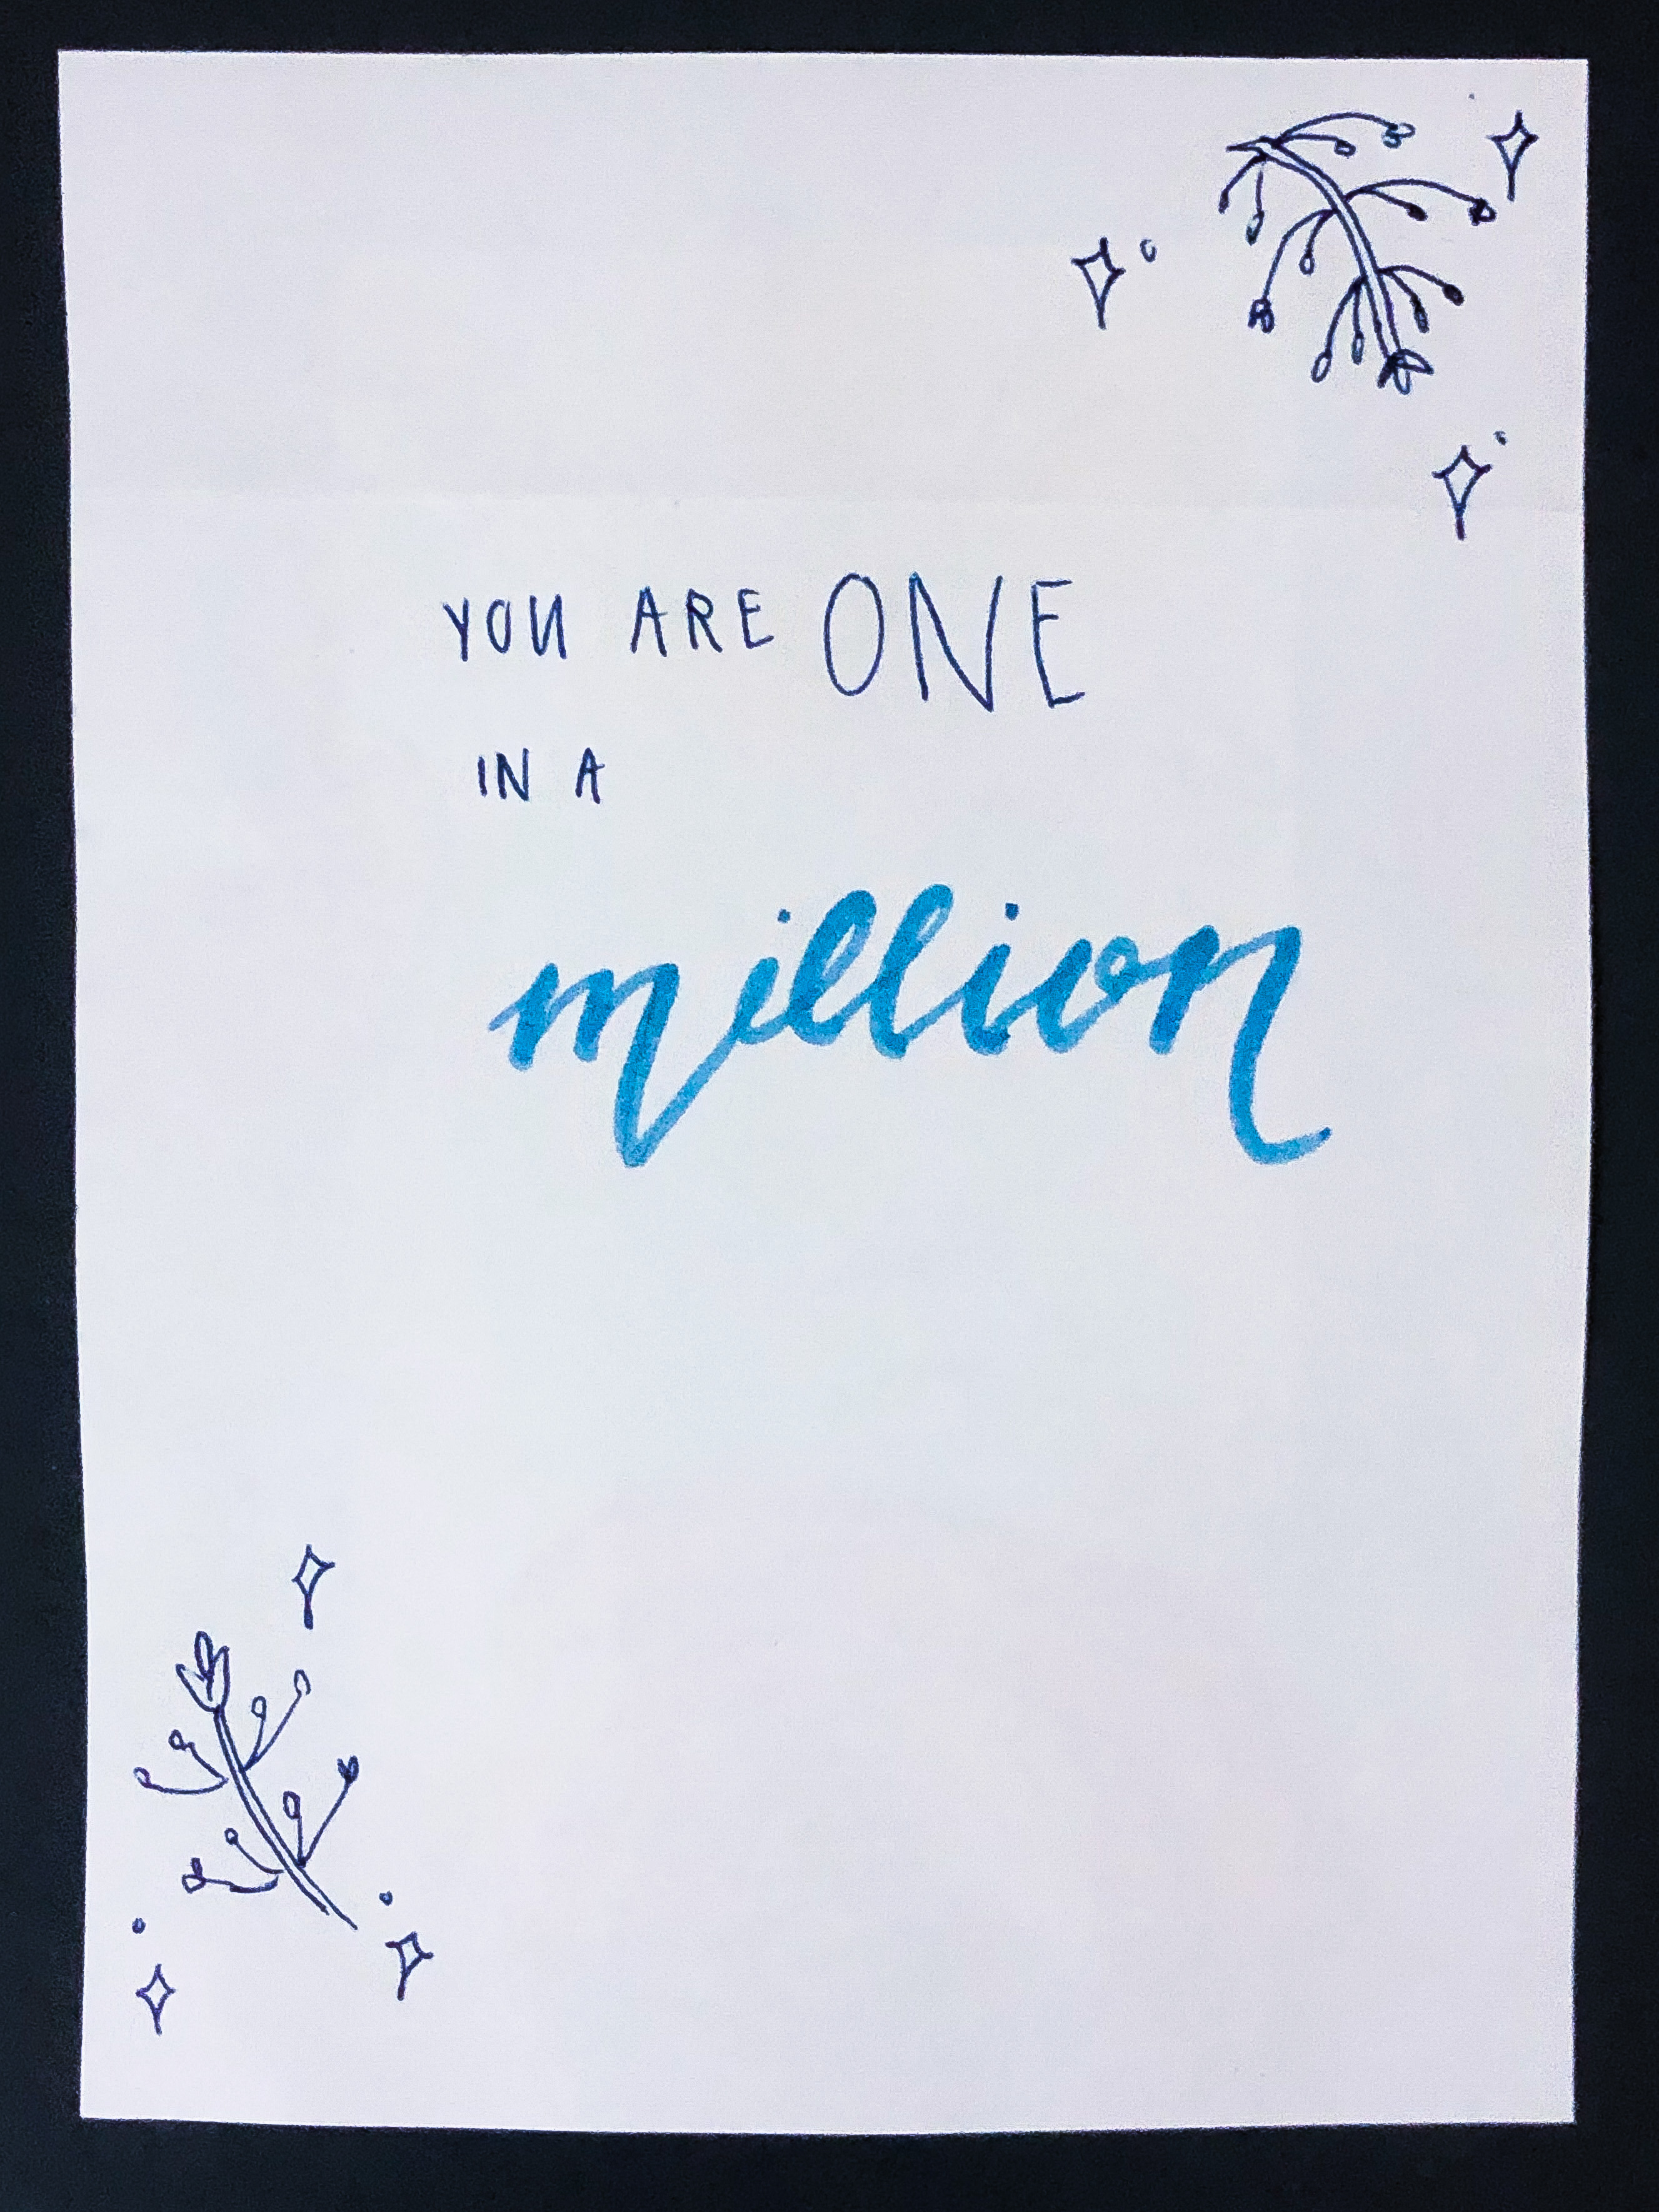 YOU ARE ONE
IN A
million